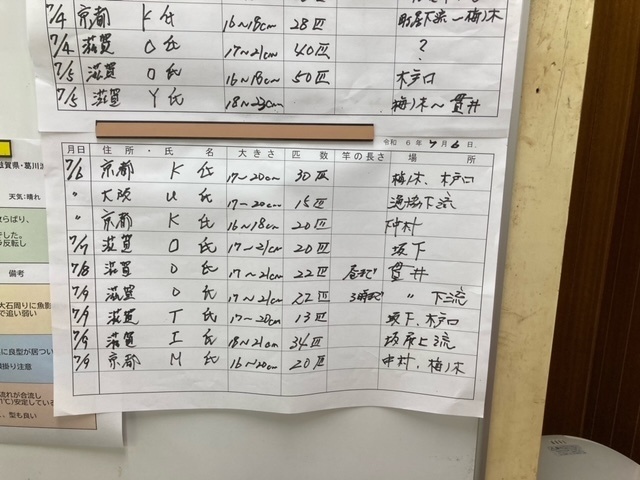 7/4 京都 K 氏 16~18cm 28匹
7/4 滋賀 O 氏 17~21cm 40匹 ?
7/5 滋賀 O 氏 16~18cm 50匹 木戸口
7/5 滋賀 Y 氏 18~23cm 梅ノ木~貫井
令和 6年 7月 6日
月日 住所・氏名 大きさ 匹数 竿の長さ 場所
7/6 京都 K 氏 17~20cm 30匹 梅ノ木、木戸口
〃 大阪 U 氏 17~20cm 15匹 下流
〃 京都 K 氏 16~18cm 20匹 中村
7/7 滋賀 O 氏 17~21cm 20匹 坂下
7/8 滋賀 O 氏 17~21cm 22匹 昼まで 貫井
7/9 滋賀 O 氏 17~21cm 22匹 3時まで 〃 下流
7/9 滋賀 T 氏 17~20cm 13匹 坂下、木戸口
7/9 滋賀 I 氏 18~21cm 34匹 坂下上流
7/9 京都 M 氏 16~20cm 20匹 中村、梅ノ木
滋賀県・葛川
天気:晴れ
備考
大石周りに魚影
で追い弱い
に良型が居つい
掛り注意
流れが合流し
℃)安定している
、型も良い